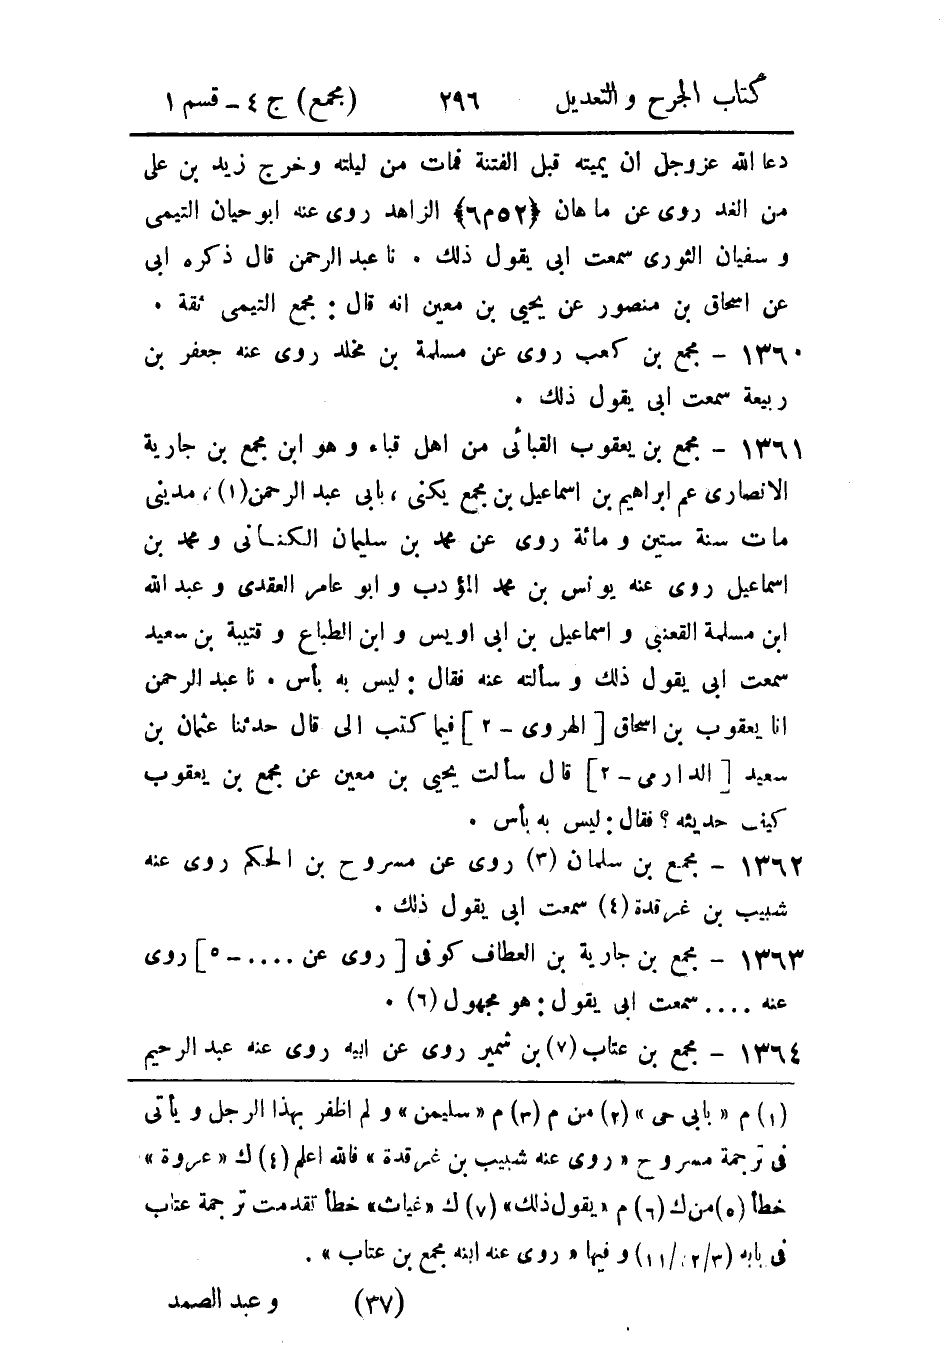 كتاب الجرح والتعديل ٢٩٦ (مجمع) ج ٤ - قسم ١
دعا الله عزوجل ان يميته قبل الفتنة فمات من ليلته وخرج زيد بن على
من الغد روى عن ماهان ﴿٥٢م٦﴾ الزاهد روى عنه ابو حيان التيمى
و سفيان الثورى سمعت ابى يقول ذلك . نا عبد الرحمن قال ذكره ابى
عن اسحاق بن منصور عن يحيى بن معين انه قال : مجمع التيمى ثقة .
١٣٦٠ - مجمع بن كعب روى عن مسلمة بن مخلد روى عنه جعفر بن
ربيعة سمعت ابى يقول ذلك .
١٣٦١ - مجمع بن يعقوب القبائى من اهل قباء و هو ابن مجمع بن جارية
الانصارى عم ابراهيم بن اسماعيل بن مجمع يكنى ، بابى عبد الرحمن (١) ، مدينى
مات سنة ستين و مائة روى عن محمد بن سليمان الكنانى و محمد بن
اسماعيل روى عنه يونس بن محمد المؤدب و ابو عامر العقدى و عبد الله
ابن مسلمة القعنبى و اسماعيل بن ابى اويس و ابن الطباع و قتيبة بن سعيد
سمعت ابى يقول ذلك و سألته عنه فقال : ليس به بأس . نا عبد الرحمن
انا يعقوب بن اسحاق [ الهروى - ٢ ] فيما كتب الى قال حدثنا عثمان بن
سعيد [ الدارمى - ٢ ] قال سألت يحيى بن معين عن مجمع بن يعقوب
كيف حديثه ؟ فقال : ليس به بأس .
١٣٦٢ - مجمع بن سلمان (٣) روى عن مسروح بن الحكم روى عنه
شبيب بن غرقدة (٤) سمعت ابى يقول ذلك .
١٣٦٣ - مجمع بن جارية بن العطاف كوفى [ روى عن .... - ٥ ] روى
عنه .... سمعت ابى يقول : هو مجهول (٦) .
١٣٦٤ - مجمع بن عتاب (٧) بن شمير روى عن ابيه روى عنه عبد الرحيم
(١) م « بابى حى » (٢) من م (٣) م « سليمن » و لم اظفر بهذا الرجل و يأتى
فى ترجمة مسروح « روى عنه شبيب بن غرقدة » فالله اعلم (٤) ك « عروة »
خطأ (٥) من ك (٦) م « يقول ذلك » (٧) ك « غياث » خطأ تقدمت ترجمة عتاب
فى بابه (١١/٢/٣) و فيها « روى عنه ابنه مجمع بن عتاب » .
(٣٧) و عبد الصمد